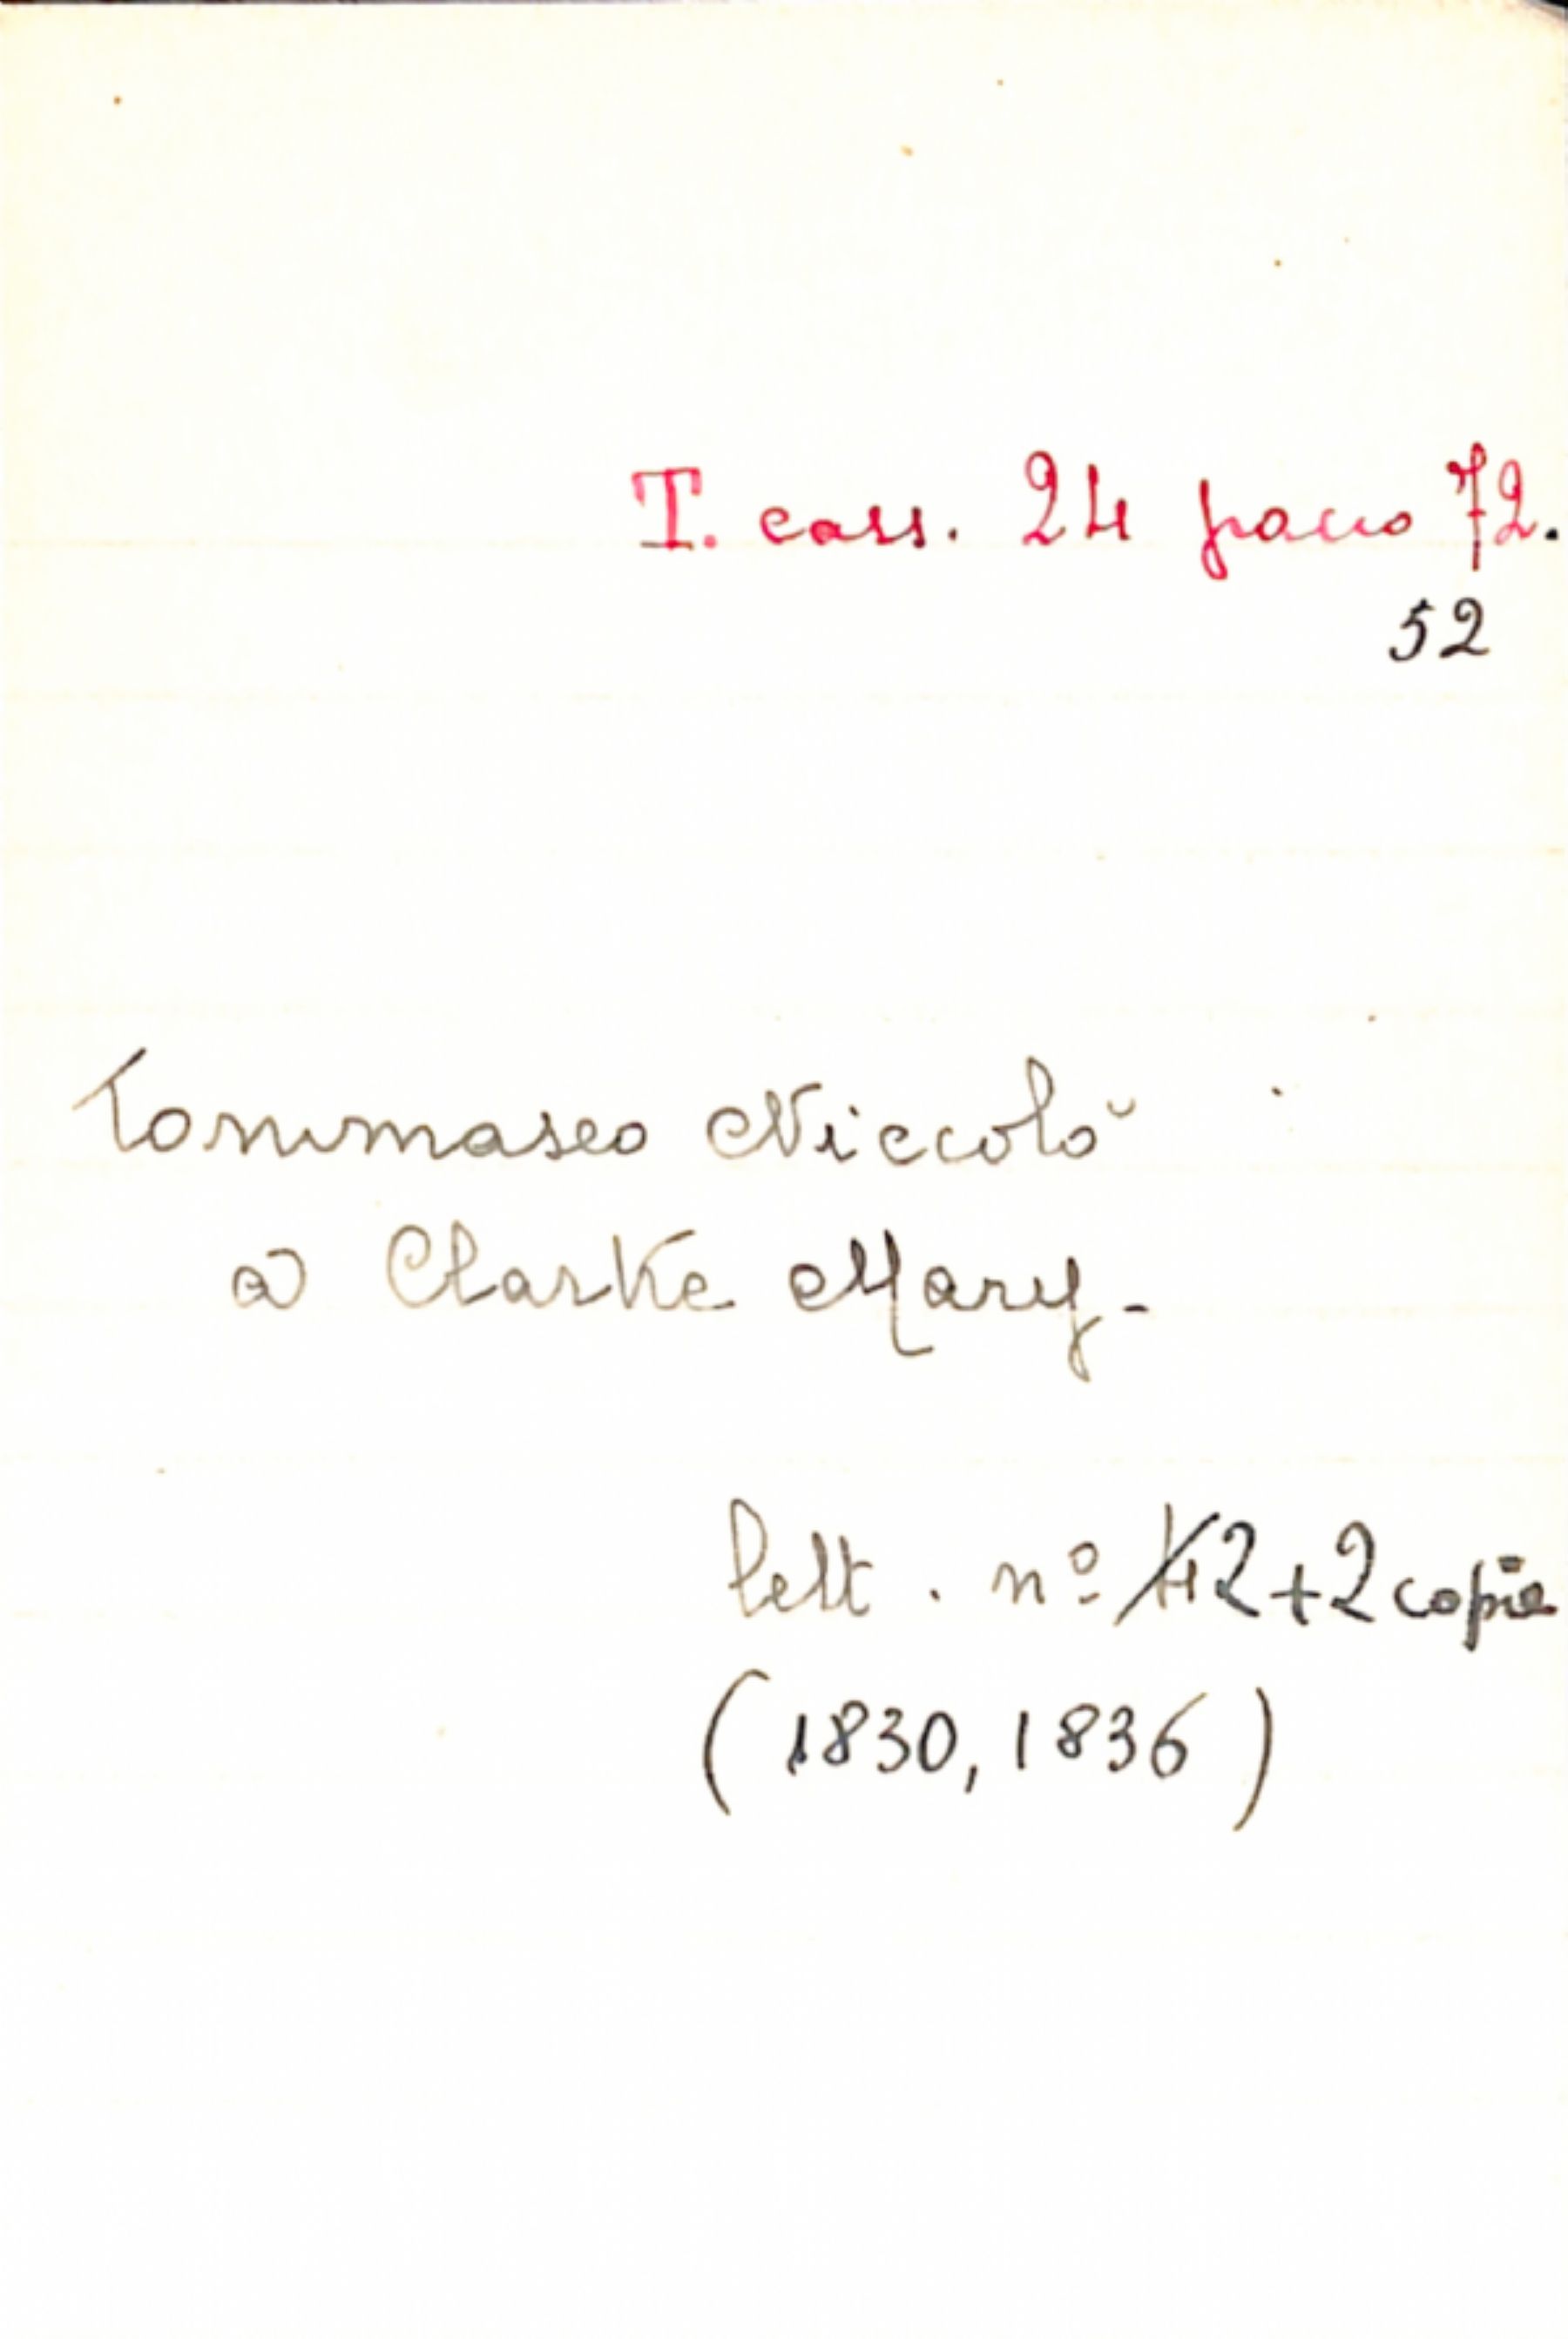 T. cass. 24 pacco 72.
52
Tommaseo Niccolò
a Clarke Mary -
lett. nº 4 2 + 2 copie
(1830, 1836)